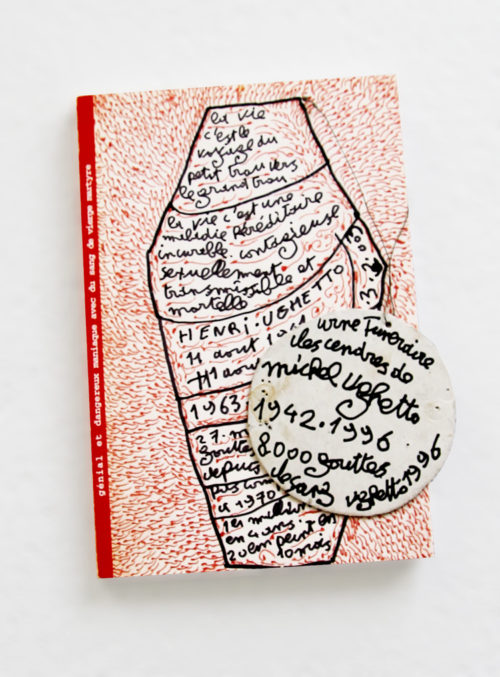 génial et dangereux maniaque avec du sang de vierge martyre
la vie
c'est le
voyage du
petit trou vers
le grand trou
la vie c'est une
maladie héréditoire
incurable. contagieuse
sexuellement
transmissible et
mortelle
HENRI. UGHETTO
11 aout
11 aou
1963
27. m
goutte
depui
puis
1970
1er million
en 4 ans.
2 em peint en
10 mois
urne funéraire
des cendres de
michel ughetto
1942. 1996
8000 gouttes
de sang
ughetto 1996